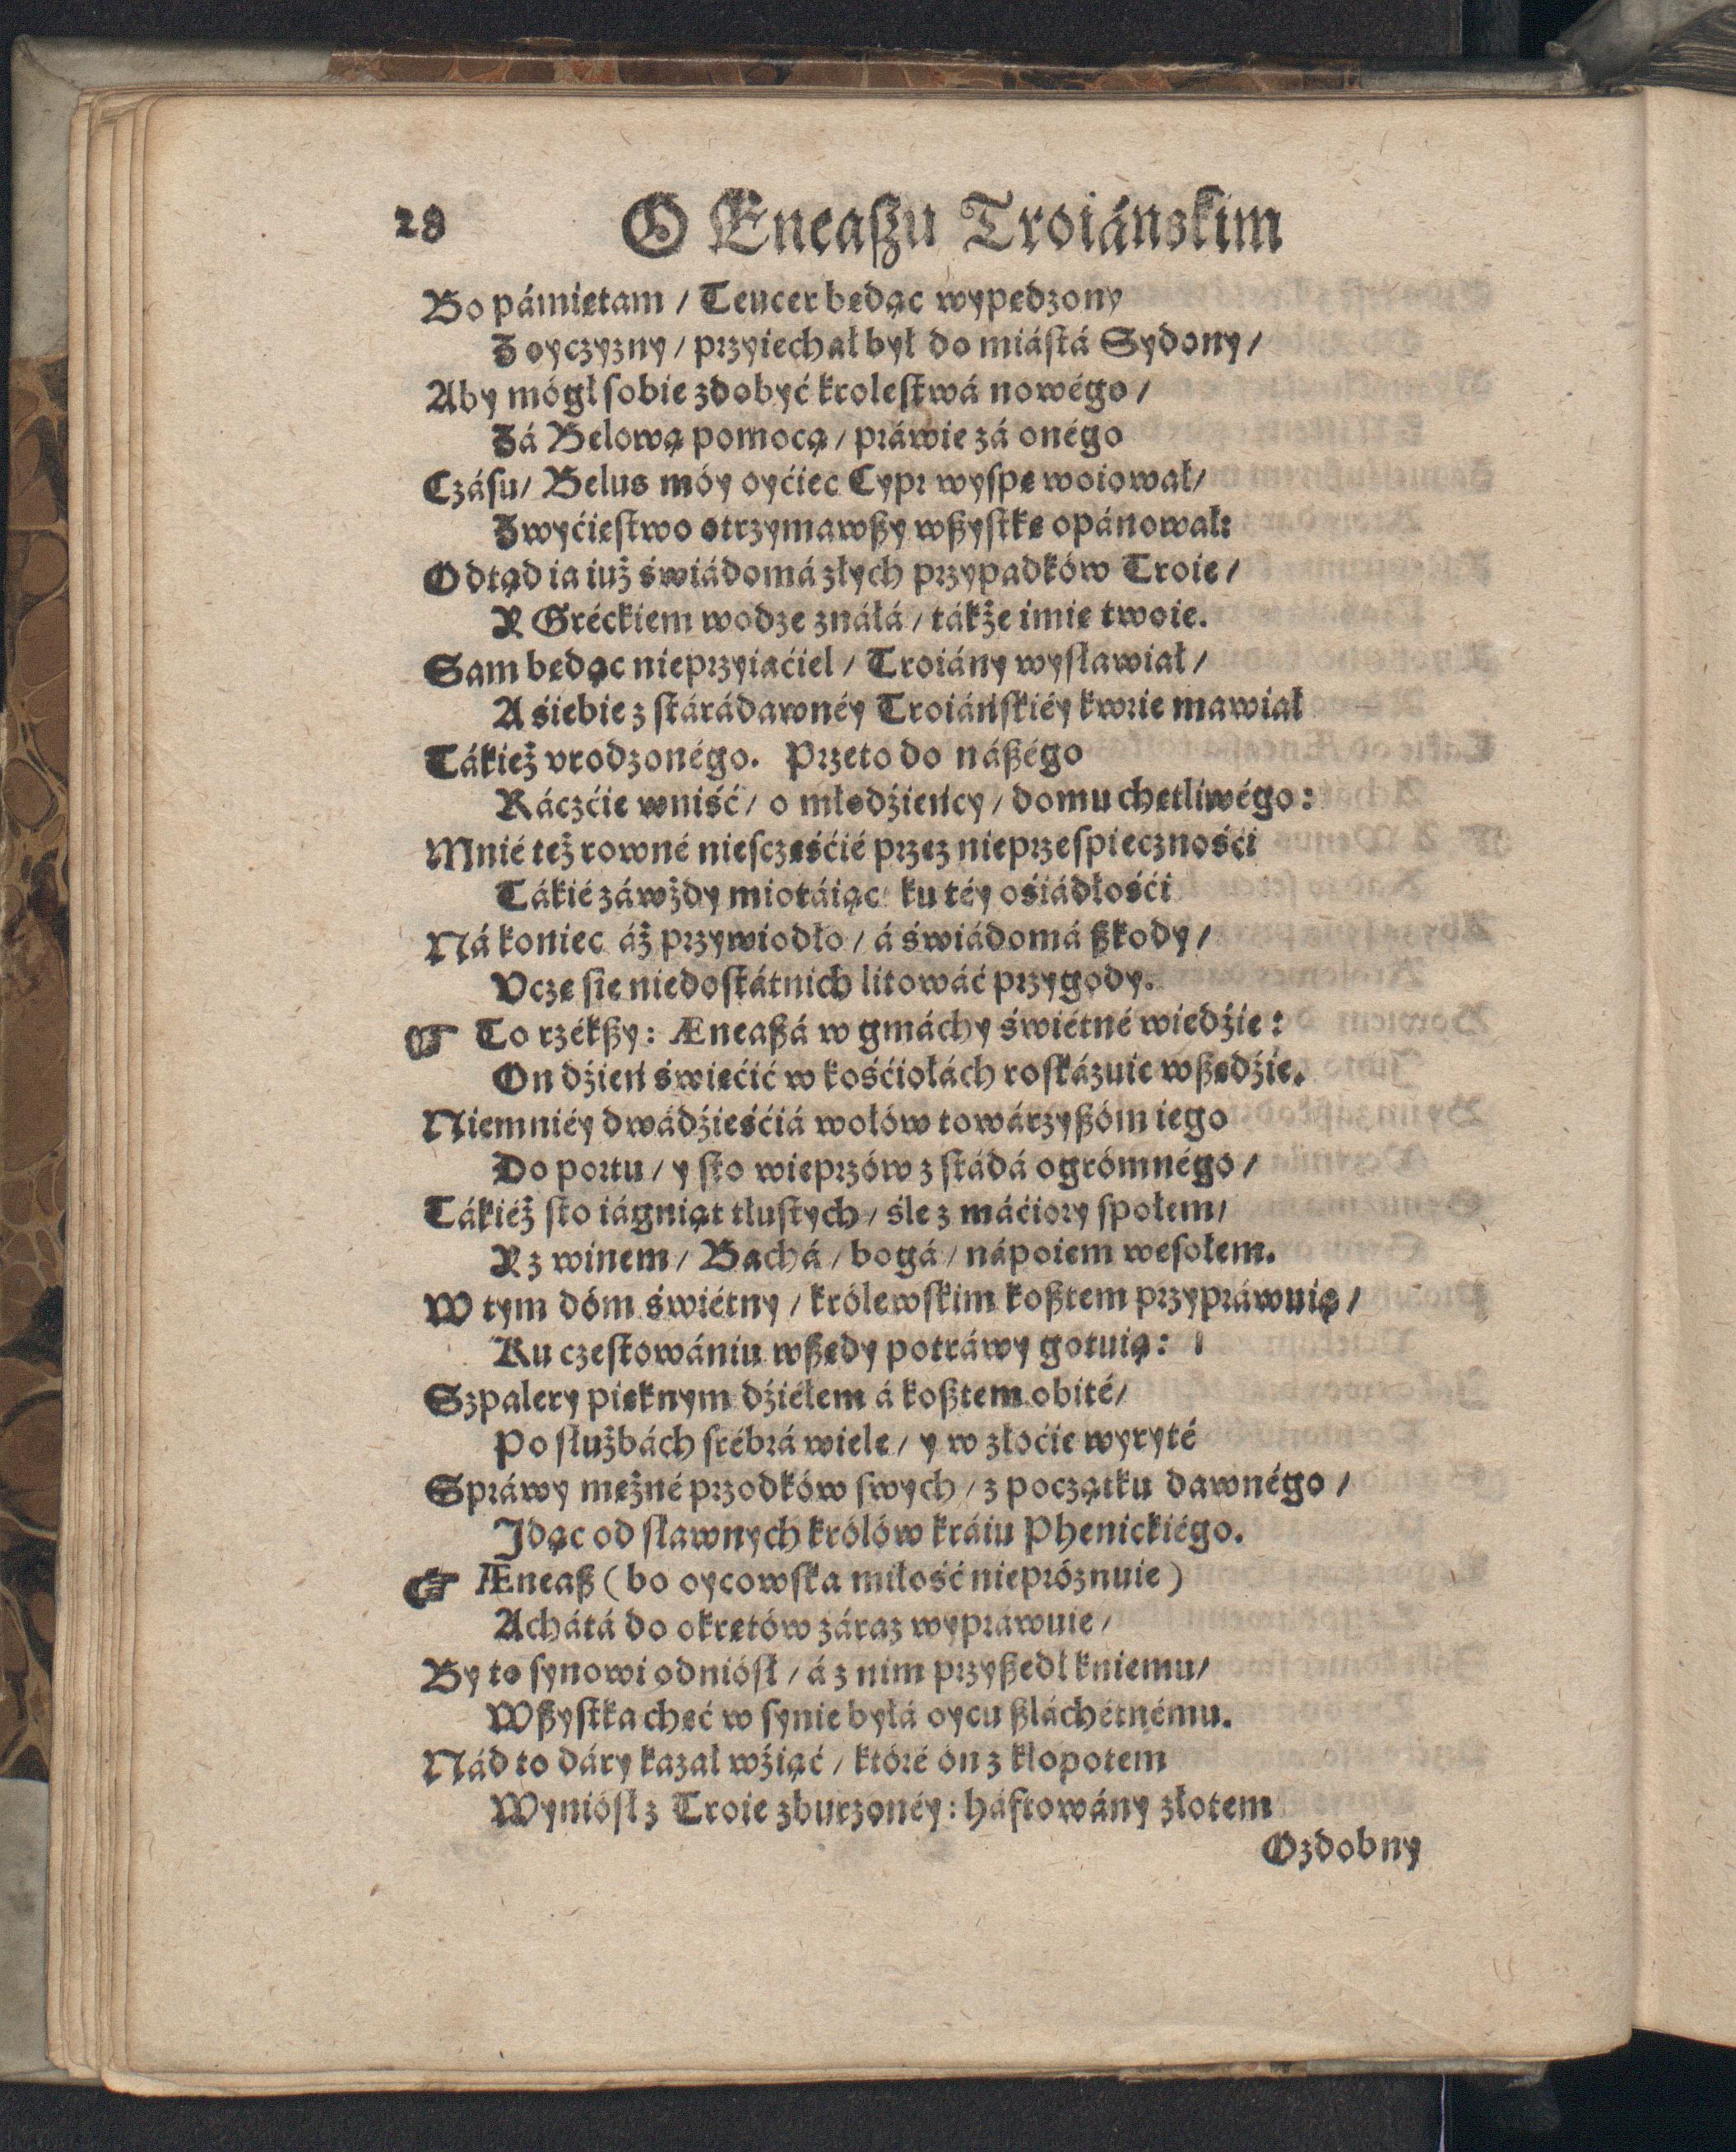 28 O Eneaßu Troiánskim
Bo pámiętam / Teucer będąc wypędzony
Z oyczyzny / przyiechał był do miástá Sydony /
Aby mógł sobie zdobyć krolestwá nowégo /
Zá Belową pomocą / práwie zá onégo
Czásu / Belus móy oyćiec Cypr wyspę woiował /
Zwyćięstwo otrzymawßy wßystkę opánował:
Odtąd ia iuż świádomá złych przypadków Troie /
Y Gréckiem wodze znáłá / tákże imię twoie.
Sam będąc nieprzyiaćiel / Troiány wysławiał /
A śiebie z stárádawnéy Troiáńskiéy kwrie mawiał
Tákież vrodzonégo. Przeto do náßégo
Ráczćie wniść / o młodźieńcy / domu chętliwégo:
Mnié też rowné niesczęśćié przez nieprzespiecznośći
Tákié záwżdy miotáiąc / ku téy ośiádłośći
Ná koniec áż przywiodło / á świádomá ßkody /
Vczę się niedostátnich litowáć przygody.
☞ To rzékßy: Æneaßá w gmáchy świétné wiedźie:
On dźień święćić w kośćiołách roskázuie wßędźie.
Niemniéy dwádźieśćiá wołów towárzyßóm iego
Do portu / y sto wieprzów z stádá ogrómnégo /
Tákiéż sto iágniąt tłustych / śle z máćiory społem /
Y z winem / Bachá / bogá / nápoiem wesołem.
W tym dóm świétny / królewskim koßtem przypráwuią /
Ku częstowániu wßędy potráwy gotuią:
Szpalery pięknym dźiéłem á koßtem obité /
Po służbách srébrá wiele / y w złoćie wyryté
Spráwy mężné przodków swych / z początku dawnégo /
Idąc od sławnych królów kráiu Phenickiégo.
☞ Æneaß (bo oycowska miłość niepróznuie)
Achátá do okrętów záraz wypráwuie /
By to synowi odniósł / á z nim przyßedł k niemu /
Wßystka chęć w synie byłá oycu ßláchétnému.
Nád to dáry kazał wźiąć / któré ón z kłopotem
Wyniósł z Troie zburzonéy: háftowány złotem
Ozdobny